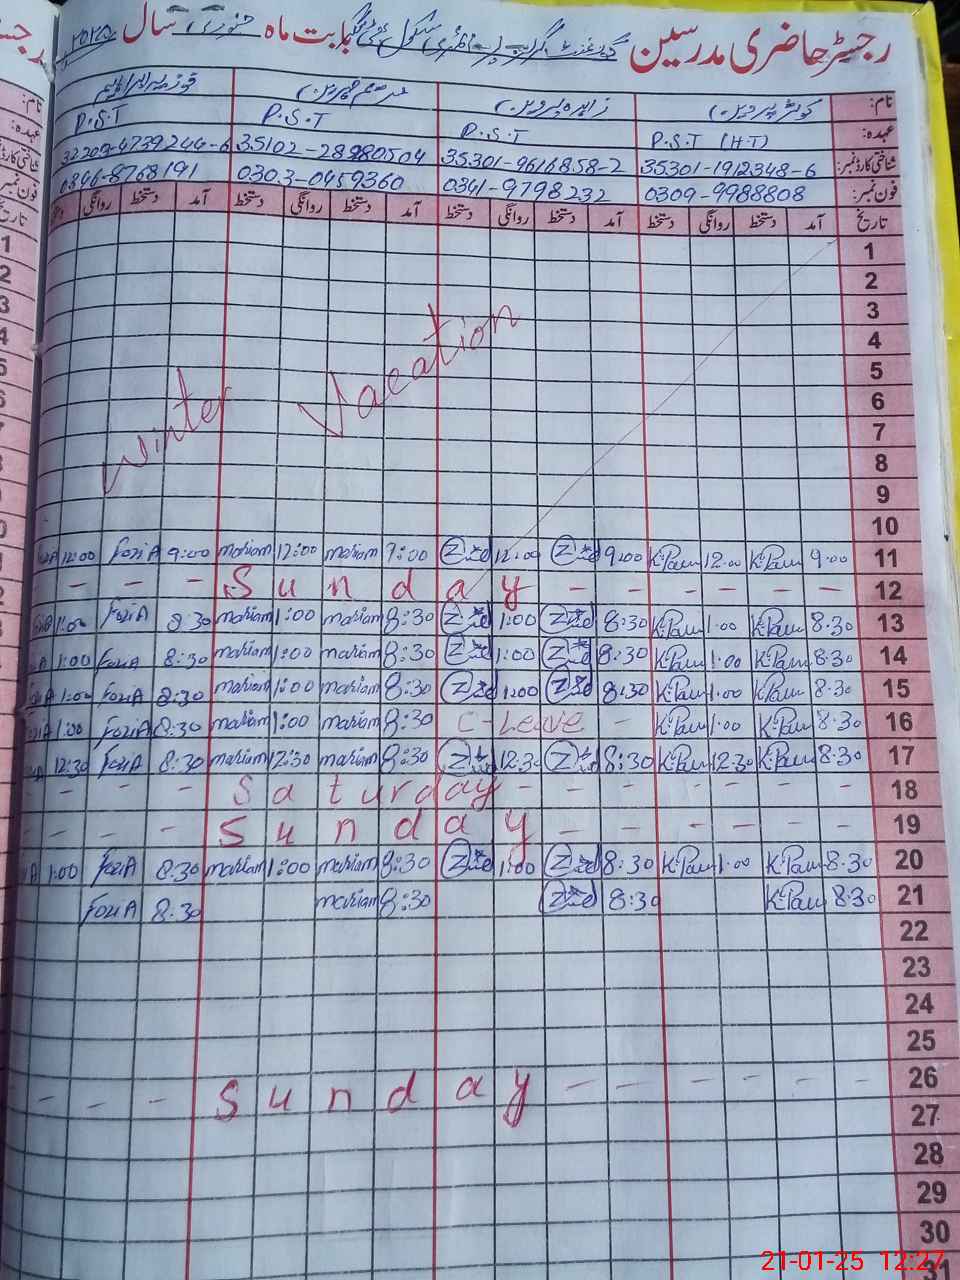 رجسٹر حاضری مدرسین گورنمنٹ گرلز پرائمری سکول بابت ماہ جنوری سال ۲۰۲۵
نام: کوثر پروین زاہدہ پروین فوزیہ ابراہیم
عہدہ: P.S.T (H.T) P.S.T P.S.T P.S.T
شناختی کارڈ نمبر: 35301-1912348-6 35301-9616858-2 32209-4739244-6
فون نمبر: 0309-9988808 0341-9798232 0303-0459360 0346-8768191
تاریخ آمد دستخط روانگی دستخط آمد دستخط روانگی دستخط آمد دستخط روانگی دستخط آمد دستخط روانگی
1
2
3
4
5
6
7
8
9
10
Winter Vacation
FoziA 12:00 FoziA 9:00 mariam 12:00 mariam 9:00 12:00 9:00 K.Parv 12:00 K.Parv 9:00 11
- - - Sunday - - - - - - 12
1:00 FoziA 8:30 mariam 1:00 mariam 8:30 1:00 8:30 K.Parv 1:00 K.Parv 8:30 13
1:00 FoziA 8:30 mariam 1:00 mariam 8:30 1:00 8:30 K.Parv 1:00 K.Parv 8:30 14
1:00 FoziA 8:30 mariam 1:00 mariam 8:30 1:00 8:30 K.Parv 1:00 K.Parv 8:30 15
1:00 FoziA 8:30 mariam 1:00 mariam 8:30 C-Leave - K.Parv 1:00 K.Parv 8:30 16
12:30 FoziA 8:30 mariam 12:30 mariam 8:30 12:30 8:30 K.Parv 12:30 K.Parv 8:30 17
- - - - Saturday - - - - - - 18
- - - - Sunday - - - - - - 19
1:00 FoziA 8:30 mariam 1:00 mariam 8:30 1:00 8:30 K.Parv 1:00 K.Parv 8:30 20
FoziA 8:30 mariam 8:30 8:30 K.Parv 8:30 21
22
23
24
25
- - - Sunday - - - - - - 26
27
28
29
30
31
21-01-25 12:27